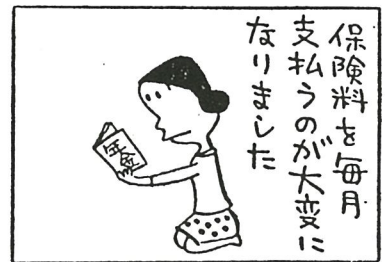 保険料を毎月
支払うのが大変に
なりました
年金